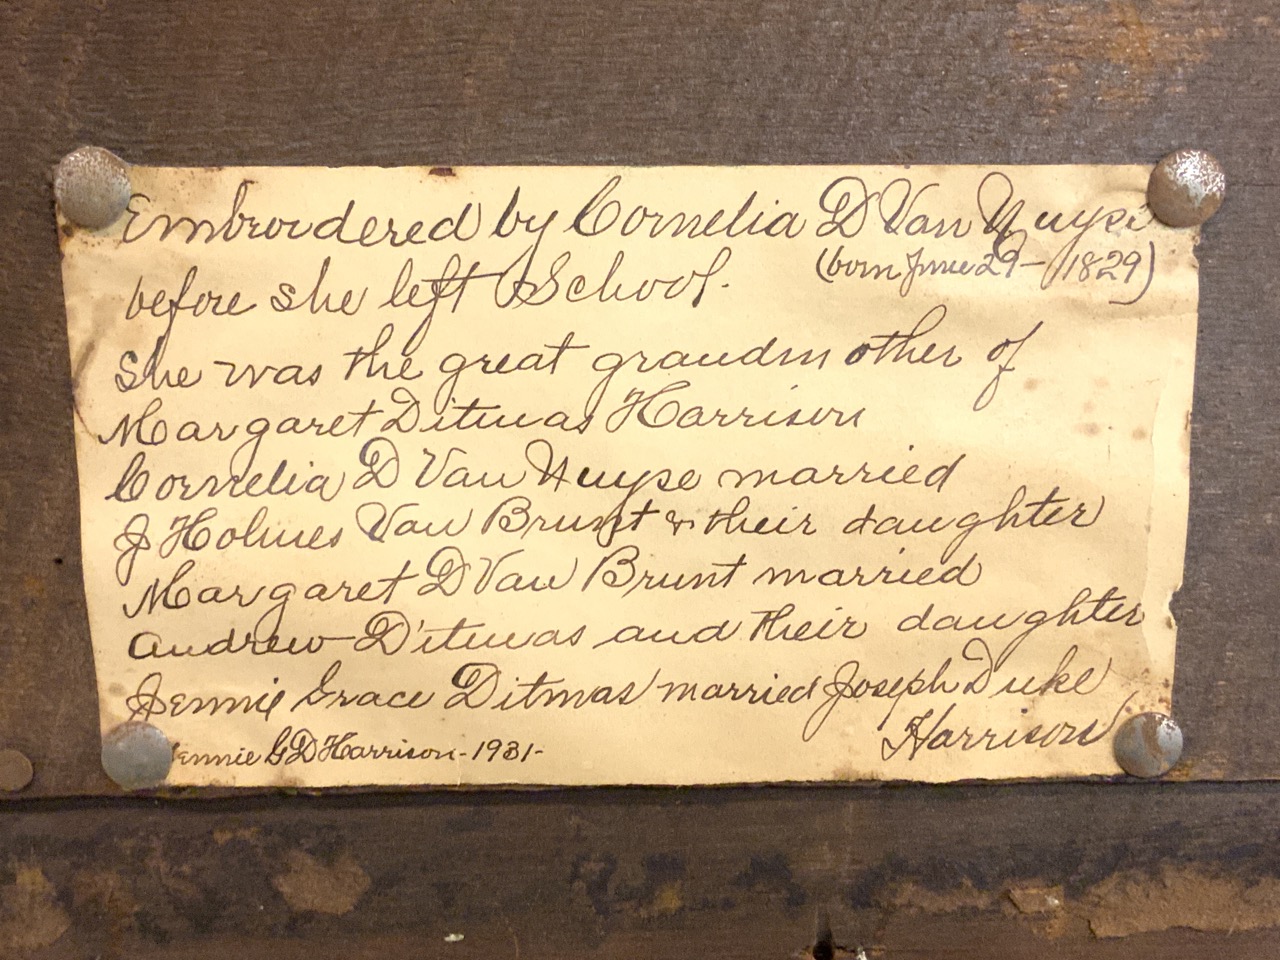 Embroidered by Cornelia D Van Nuyse
(born June 29 - 1829)
before she left School.
She was the great grandmother of
Margaret Ditmas Harrison
Cornelia D Van Nuyse married
J Holmes Van Brunt & their daughter
Margaret D Van Brunt married
Andrew Ditmas and their daughter
Jennie Grace Ditmas married Joseph Duke
Harrison
Jennie G D Harrison - 1931 -